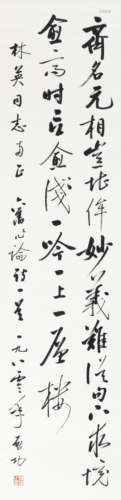 齐名元相岂堪侔妙义难从句下求境
愈高时言愈浅一吟一上一层楼
林英同志
旧作论诗一首一九八零年启功